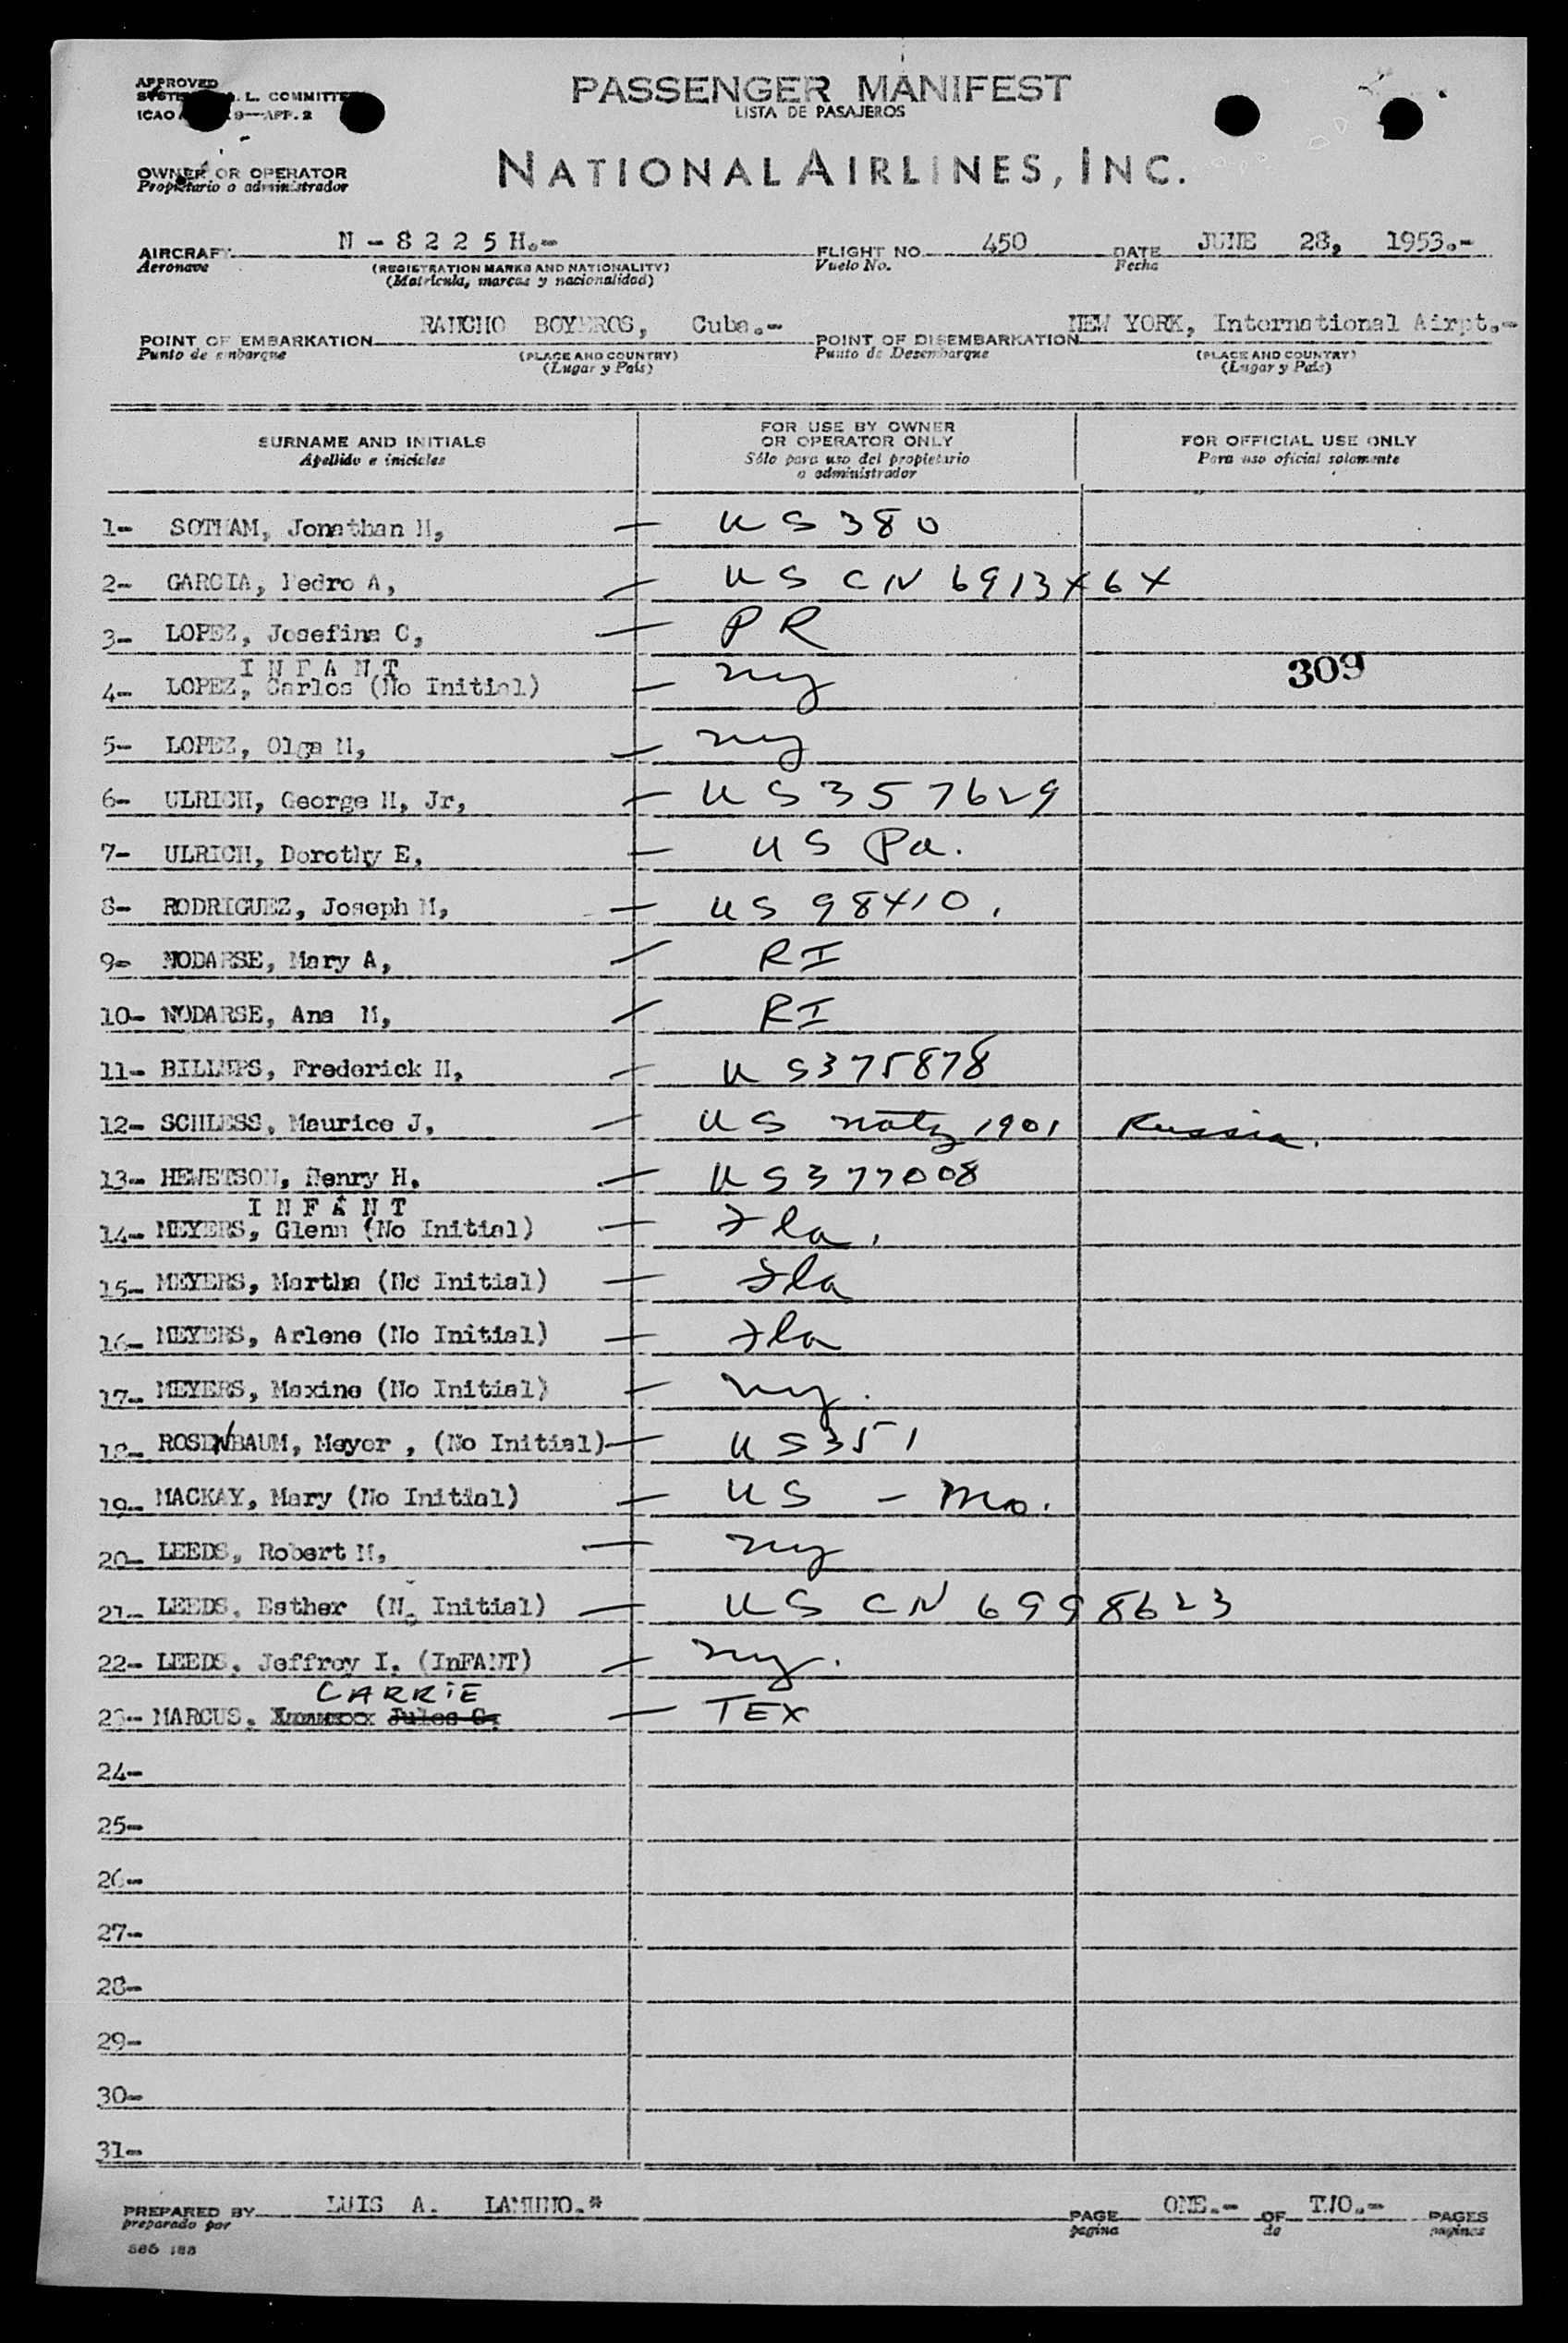 APPROVED
L. COMMITTEE
ICAO 9—APP. 2
PASSENGER MANIFEST
LISTA DE PASAJEROS
OWNER OR OPERATOR
Propietario o administrador
NATIONAL AIRLINES, INC.
AIRCRAFT N - 8 2 2 5 H.- FLIGHT NO. 450 DATE JUNE 28, 1953.-
Aeronave (REGISTRATION MARKS AND NATIONALITY) Vuelo No. Fecha
(Matrícula, marcas y nacionalidad)
POINT OF EMBARKATION RANCHO BOYEROS, Cuba.- POINT OF DISEMBARKATION NEW YORK, International Airpt.-
Punto de embarque (PLACE AND COUNTRY) Punto de Desembarque (PLACE AND COUNTRY)
(Lugar y País) (Lugar y País)
SURNAME AND INITIALS FOR USE BY OWNER OR OPERATOR ONLY FOR OFFICIAL USE ONLY
Apellido e iniciales Sólo para uso del propietario o administrador Para uso oficial solamente
1- SOTHAM, Jonathan — US 380
2- GARCIA, Pedro A, — US CN 6913464
3- LOPEZ, Josefina C, — PR
I N F A N T
4- LOPEZ, Carlos (No Initial) — ny 309
5- LOPEZ, Olga M, — ny
6- ULRICH, George H, Jr, — US 357629
7- ULRICH, Dorothy E, — US Pa.
8- RODRIGUEZ, Joseph M, — US 98410.
9- NODARSE, Mary A, — RI
10- NODARSE, Ana M, — RI
11- Frederick H, — US375878
12- SCHLESS, Maurice J, — US natz 1901 Russia.
13- HEWETSON, Henry H, — US377008
I N F A N T
14- MEYERS, Glenn (No Initial) — Fla.
15- MEYERS, Martha (No Initial) — Fla
16- MEYERS, Arlene (No Initial) — Fla
17- MEYERS, Maxine (No Initial) — ny.
18- ROSENBAUM, Meyer , (No Initial) — US351
19- MACKAY, Mary (No Initial) — US - Mo.
20- LEEDS, Robert M, — ny
21- LEEDS, Esther (No Initial) — US CN 6998623
22- LEEDS, Jeffrey I. (InFANT) — ny.
CARRIE
23- MARCUS, Jules C, — TEX
24-
25-
26-
27-
28-
29-
30-
31-
PREPARED BY LUIS A. PAGE ONE.- OF TWO.- PAGES
preparado por pagina de paginas